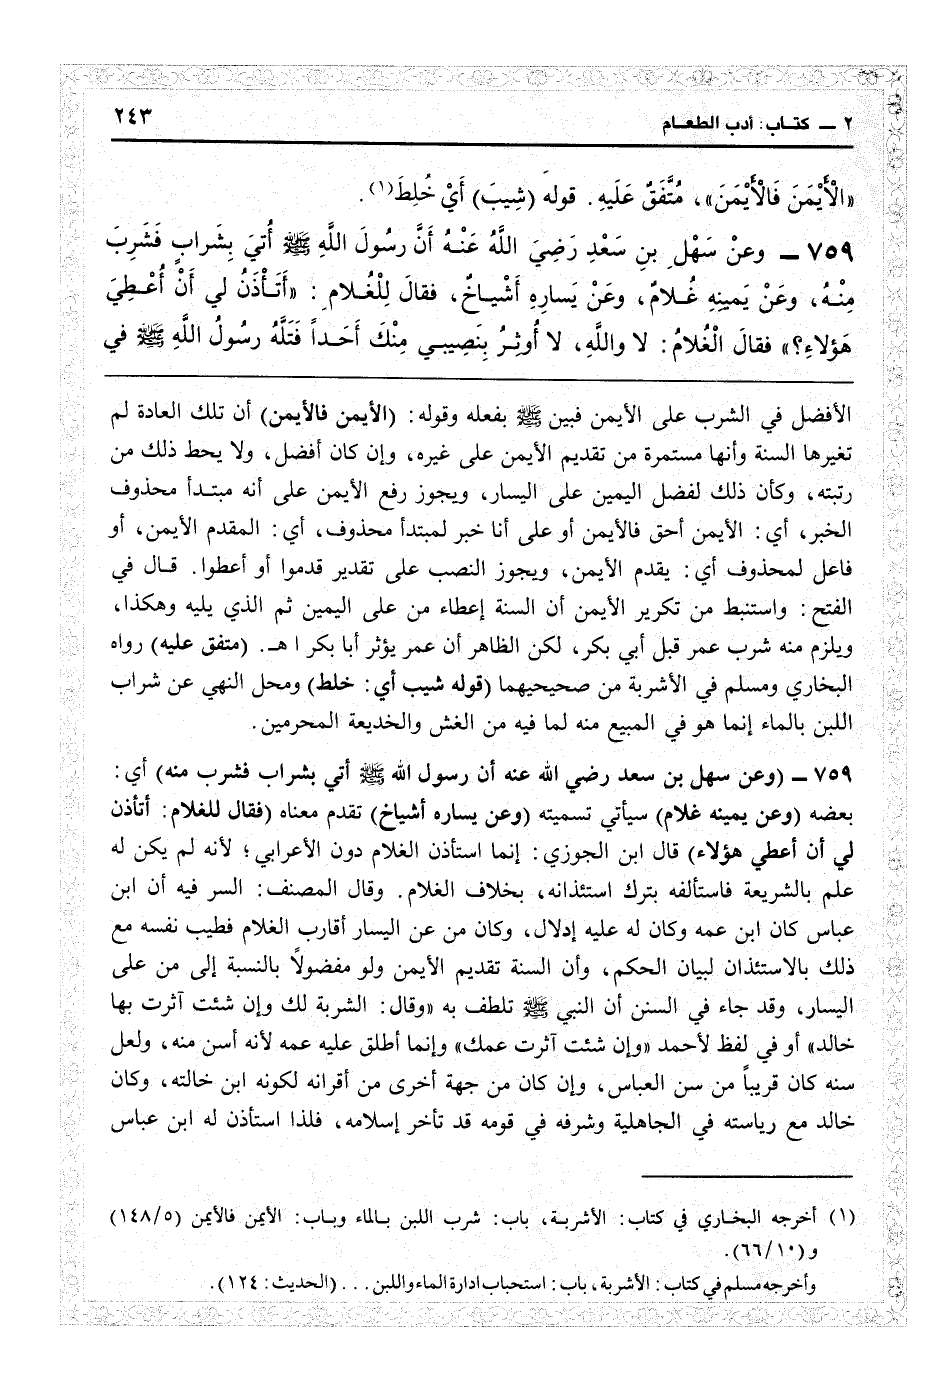 ٢ ــ كتـاب: أدب الطعـام
٢٤٣
«الْأَيْمَنَ فَالْأَيْمَنَ»، مُتَّفَقٌ عَلَيهِ. قوله (شِيبَ) أَيْ خُلِطَ(١).
٧٥٩ ــ وعنْ سَهْلِ بنِ سَعْدٍ رَضِيَ اللَّهُ عَنْـهُ أَنَّ رسُولَ اللَّهِ ﷺ أُتيَ بِشَرابٍ فَشَرِبَ
مِنْـهُ، وعَنْ يَمينِهِ غُـلامٌ، وعَنْ يَسارِهِ أَشْيـاخٌ، فقالَ لِلْغُـلامِ: «أَتَـأْذَنُ لي أَنْ أُعْـطِيَ
هَؤلاءِ؟» فقالَ الْغُلامُ: لا واللَّهِ، لا أُوثِـرُ بِنَصِيبـي مِنْكَ أَحَـداً فَتَلَّهُ رسُولُ اللَّهِ ﷺ في
الأفضل في الشرب على الأيمن فبين ﷺ بفعله وقوله: (الأيمن فالأيمن) أن تلك العادة لم
تغيرها السنة وأنها مستمرة من تقديم الأيمن على غيره، وإن كان أفضل، ولا يحط ذلك من
رتبته، وكأن ذلك لفضل اليمين على اليسار، ويجوز رفع الأيمن على أنه مبتـدأ محذوف
الخبر، أي: الأيمن أحق فالأيمن أو على أنا خبر لمبتدأ محذوف، أي: المقدم الأيمن، أو
فاعل لمحذوف أي: يقدم الأيمن، ويجوز النصب على تقدير قدموا أو أعطوا. قـال في
الفتح: واستنبط من تكرير الأيمن أن السنة إعطاء من على اليمين ثم الذي يليه وهكذا،
ويلزم منه شرب عمر قبل أبي بكر، لكن الظاهر أن عمر يؤثر أبا بكر ا هـ. (متفق عليه) رواه
البخاري ومسلم في الأشربة من صحيحيهما (قوله شيب أي: خلط) ومحل النهي عن شراب
اللبن بالماء إنما هو في المبيع منه لما فيه من الغش والخديعة المحرمين.
٧٥٩ ــ (وعن سهل بن سعد رضي الله عنه أن رسول الله ﷺ أتي بشراب فشرب منه) أي:
بعضه (وعن يمينه غلام) سيأتي تسميته (وعن يساره أشياخ) تقدم معناه (فقال للغلام: أتأذن
لي أن أعطي هؤلاء) قال ابن الجوزي: إنما استأذن الغلام دون الأعرابي؛ لأنه لم يكن له
علم بالشريعة فاستألفه بترك استئذانه، بخلاف الغلام. وقال المصنف: السر فيه أن ابن
عباس كان ابن عمه وكان له عليه إدلال، وكان من عن اليسار أقارب الغلام فطيب نفسه مع
ذلك بالاستئذان لبيان الحكم، وأن السنة تقديم الأيمن ولو مفضولاً بالنسبة إلى من على
اليسار، وقد جاء في السنن أن النبي ﷺ تلطف به «وقال: الشربة لك وإن شئت آثرت بها
خالد» أو في لفظ لأحمد «وإن شئت آثرت عمك» وإنما أطلق عليه عمه لأنه أسن منه، ولعل
سنه كان قريباً من سن العباس، وإن كان من جهة أخرى من أقرانه لكونه ابن خالته، وكان
خالد مع رياسته في الجاهلية وشرفه في قومه قد تأخر إسلامه، فلذا استأذن له ابن عباس
(١) أخرجه البخـاري في كتاب: الأشربـة، باب: شرب اللبن بـالماء وبـاب: الأيمن فالأيمن (١٤٨/٥)
و(٦٦/١٠).
وأخرجه مسلم في كتاب: الأشربة، باب: استحباب ادارة الماء واللبن... (الحديث: ١٢٤).